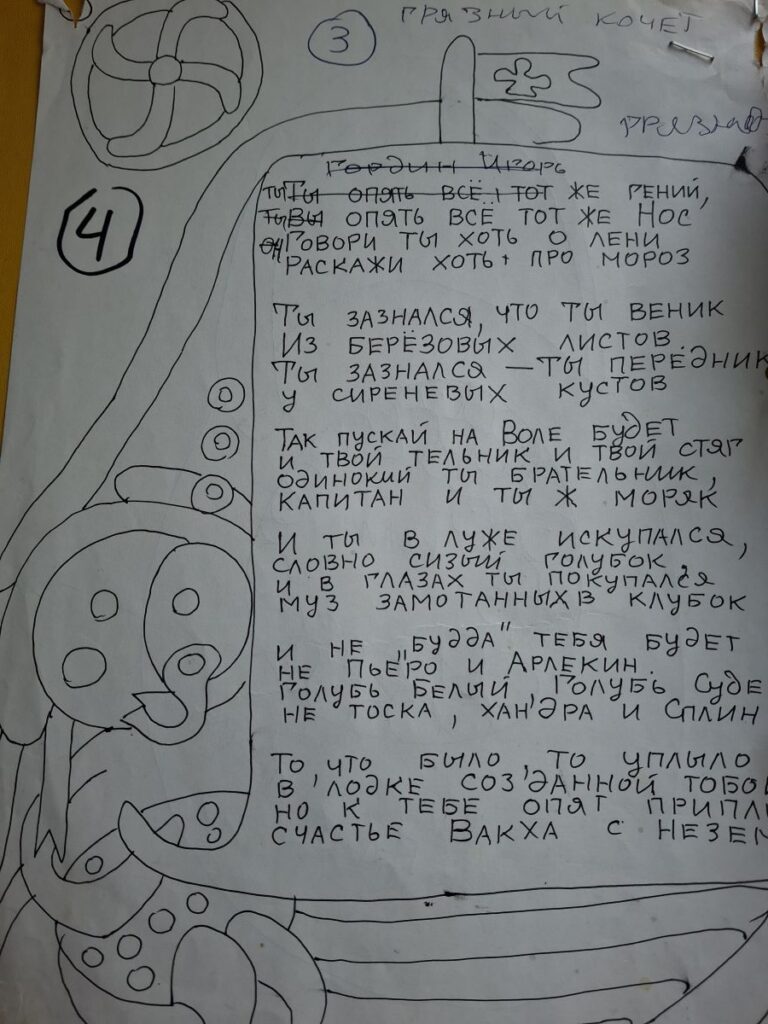 3
ГРЯЗНЫЙ КОЧЕТ
4
Гордин Игорь
ты Ты опять всё, тот же гений,
ты Вы опять всё тот же Нос
он Говори ты хоть о лени
Раскажи хоть про мороз
Ты зазнался, что ты веник
Из берёзовых листов.
Ты зазнался — ты передник
у сиреневых кустов
Так пускай на Воле будет
и твой тельник и твой стяг
одинокий ты брательник,
капитан и ты ж моряк
И ты в луже искупался,
словно сизый голубок,
и в глазах ты покупался
муз замотанных в клубок
И не „Будда" тебя будет
не Пьеро и Арлекин.
Голубь Белый, Голубь Суде
не тоска, хандра и Сплин
То, что было, то уплыло
в лодке созданной тобо
но к тебе опят припл
счастье Вакха с незем